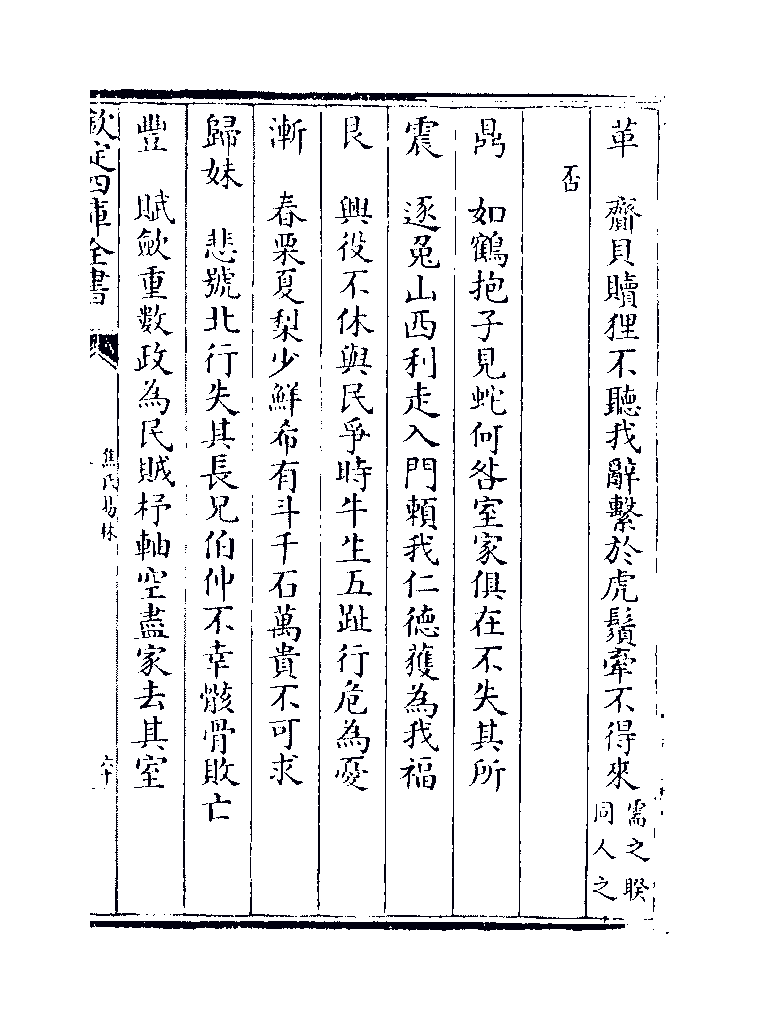 革　齎貝贖狸不聽我辭繫於虎鬚牽不得來需之睽同人之
否
鼎　如鶴抱子見蛇何咎室家俱在不失其所
震　逐兔山西利走入門賴我仁德獲為我福
艮　興役不休與民爭時牛生五趾行危為憂
漸　春栗夏梨少鮮希有斗千石萬貴不可求
歸妹　悲號北行失其長兄伯仲不幸骸骨敗亡
豐　賦斂重數政為民賊杼軸空盡家去其室
欽定四庫全書
焦氏易林
六十